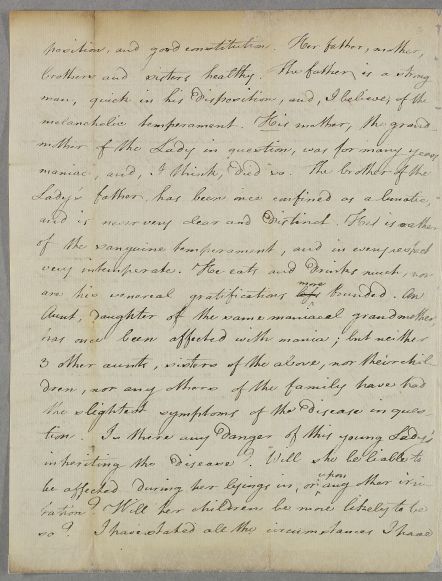 position, and good constitution. Her father, mother,
brothers and sisters healthy. The father is a strong
man, quick in his disposition, and, I believe, of the
melancholic temperament. His mother, the grand
mother of the Lady in question, was for many years
maniac, and, I think, died so. The brother of the
Lady's father has been once confined as a lunatic,
and is never very clear and distinct. He is rather
of the sanguine temperament and in every respect
very intemperate. He eats and drinks much, nor
are his venereal gratifications more bounded. An
Aunt, daughter of the same maniacal grandmother
has once been affected with mania; but neither
3 other aunts, sisters of the above, nor their chil
dren, nor any others of the family have had
the slightest symptoms of the disease in ques
tion. Is there any danger of this young Lady's
inheriting the disease? Will she be liable to
be affected during her lyings in, or upon any other irri
tation? Will her children be more likely to be
so? I have stated all the circumstances I have